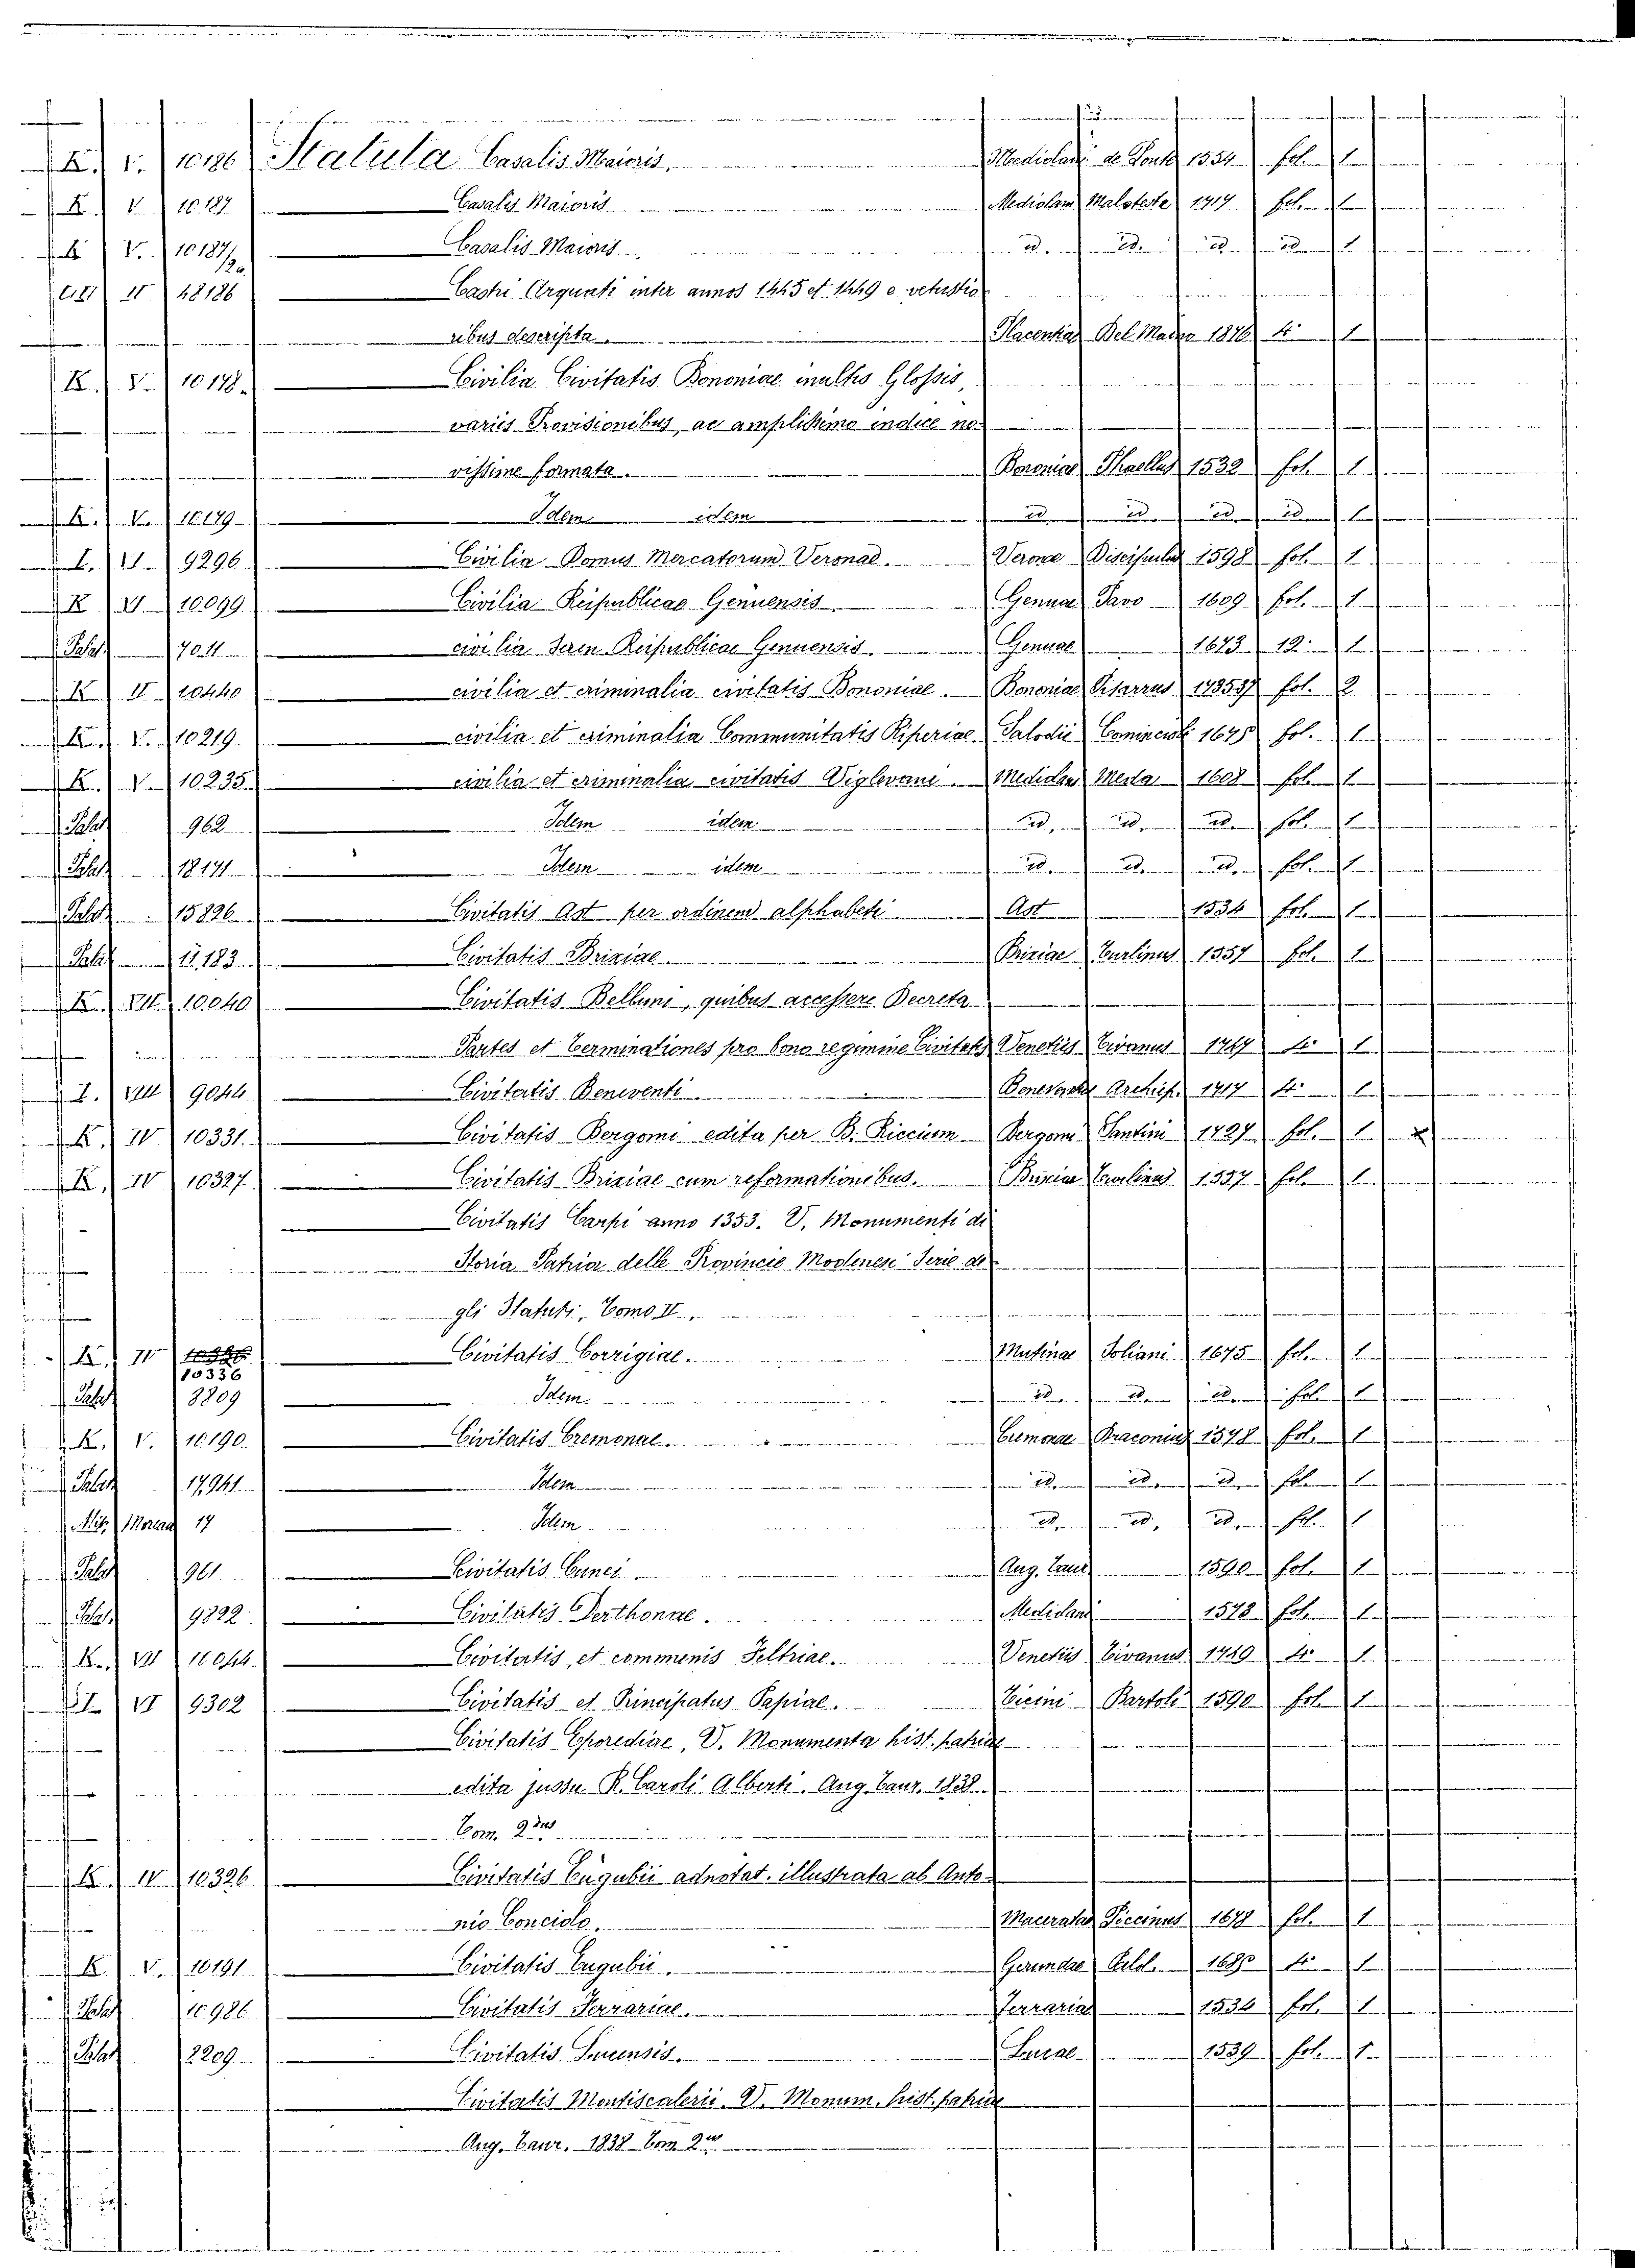 K. V. 10186 Statuta Casalis Maioris. Mediolani de Ponte 1554 fol. 1
K. V. 10187 Casalis Maioris Mediolani Malateste 1717 fol. 1
K V. 10187/2a. Casalis Maioris id. id. id. id. 1
II 48186 Castri Arquati inter annos 1445 et 1449 e vetustio
ribus descripta. Placentiae Del Maino 1876 4° 1
K. V. 10178. Civilia Civitatis Bononiae multis Glossis,
variis Provisionibus, ac amplissimo indice no-
vissime formata. Bononiae Phaellus 1532 fol. 1
K. V. 10179 Idem idem id id. id. id 1
I. VI. 9296 Civilia Domus Mercatorum Veronae. Verone Discipulus 1598 fol. 1
K VI 10099 Civilia Reipublicae Genuensis. Genuae Pavo 1609 fol. 1
Palat. 7011 civilia Seren. Reipublicae Genuensis. Genuae 1673 12. 1
K II 10440 civilia et criminalia civitatis Bononiae. Bononiae Pisarrus 173537 fol. 2
K. V. 10219 civilia et criminalia Communitatis Riperiae Salodii Comincioli 1675 fol. 1
K. V. 10235 civilia et criminalia civitatis Viglevani. Mediolani Meda 1608 fol. 1
Palat 962 Idem idem id. id. id. fol. 1
Palat 18171 Idem idem id. id. id. fol. 1
Palat 15896 Civitatis Ast per ordinem alphabeti Ast 1534 fol. 1
Palat 11,183 Civitatis Brixiae. Brixiae Turlinus 1557 fol. 1
K. VII. 10040 Civitatis Belluni, quibus accessere Decreta
Partes et Terminationes pro bono regimine Civitatis Venetiis Tivanus 1747 4° 1
I. VIII 9044 Civitatis Beneventi Beneventi Archiep. 1717 4° 1
K. IV. 10331. Civitatis Bergomi edita per B. Riccium Bergomi Santini 1727 fol. 1 x
K. IV 10327 Civitatis Brixiae cum reformationibus. Brixiae Turlinus 1557 fol. 1
Civitatis Carpi anno 1353. V. Monumenti di
Storia Patria delle Provincie Modenesi Serie de
gli Statuti, Tomo II.
K. IV 10336 Civitatis Corrigiae. Mutinae Soliani 1675 fol. 1
Palat 3809 Idem id. id. id. fol. 1
K. V. 10190 Civitatis Cremonae. Cremonae Draconius 1578 fol. 1
Palat 17,941 Idem id. id. id. fol. 1
17 Idem id. id. id. fol. 1
Palat 961 Civitatis Cunei Aug. Taur. 1590 fol. 1
Palat 9822 Civitatis Derthonae. Mediolani 1573 fol. 1
K. VII 10044. Civitatis, et communis Feltriae. Venetiis Tivanus 1749 4° 1
I. VI 9302 Civitatis et Principatus Papiae. Ticini Bartoli 1590 fol. 1
Civitatis Eporediae, V. Monumenta hist. patriae
edita jussu R. Caroli Alberti. Aug. Taur. 1838.
Tom. 2dus
K. IV 10326 Civitatis Eugubii adnotat. illustrata ab Anto-
nio Conciolo. Maceratae Piccinus 1678 fol. 1
K. V. 10191 Civitatis Eugubii. 4° 1
Palat 10.986 Civitatis Ferrariae. Ferrariae 1534 fol. 1
Palat 2209 Civitatis Lucensis. Lucae 1539 fol. 1
Civitatis Montiscalerii V. Monum. hist. patriae
Aug. Taur. 1838 Tom 2us